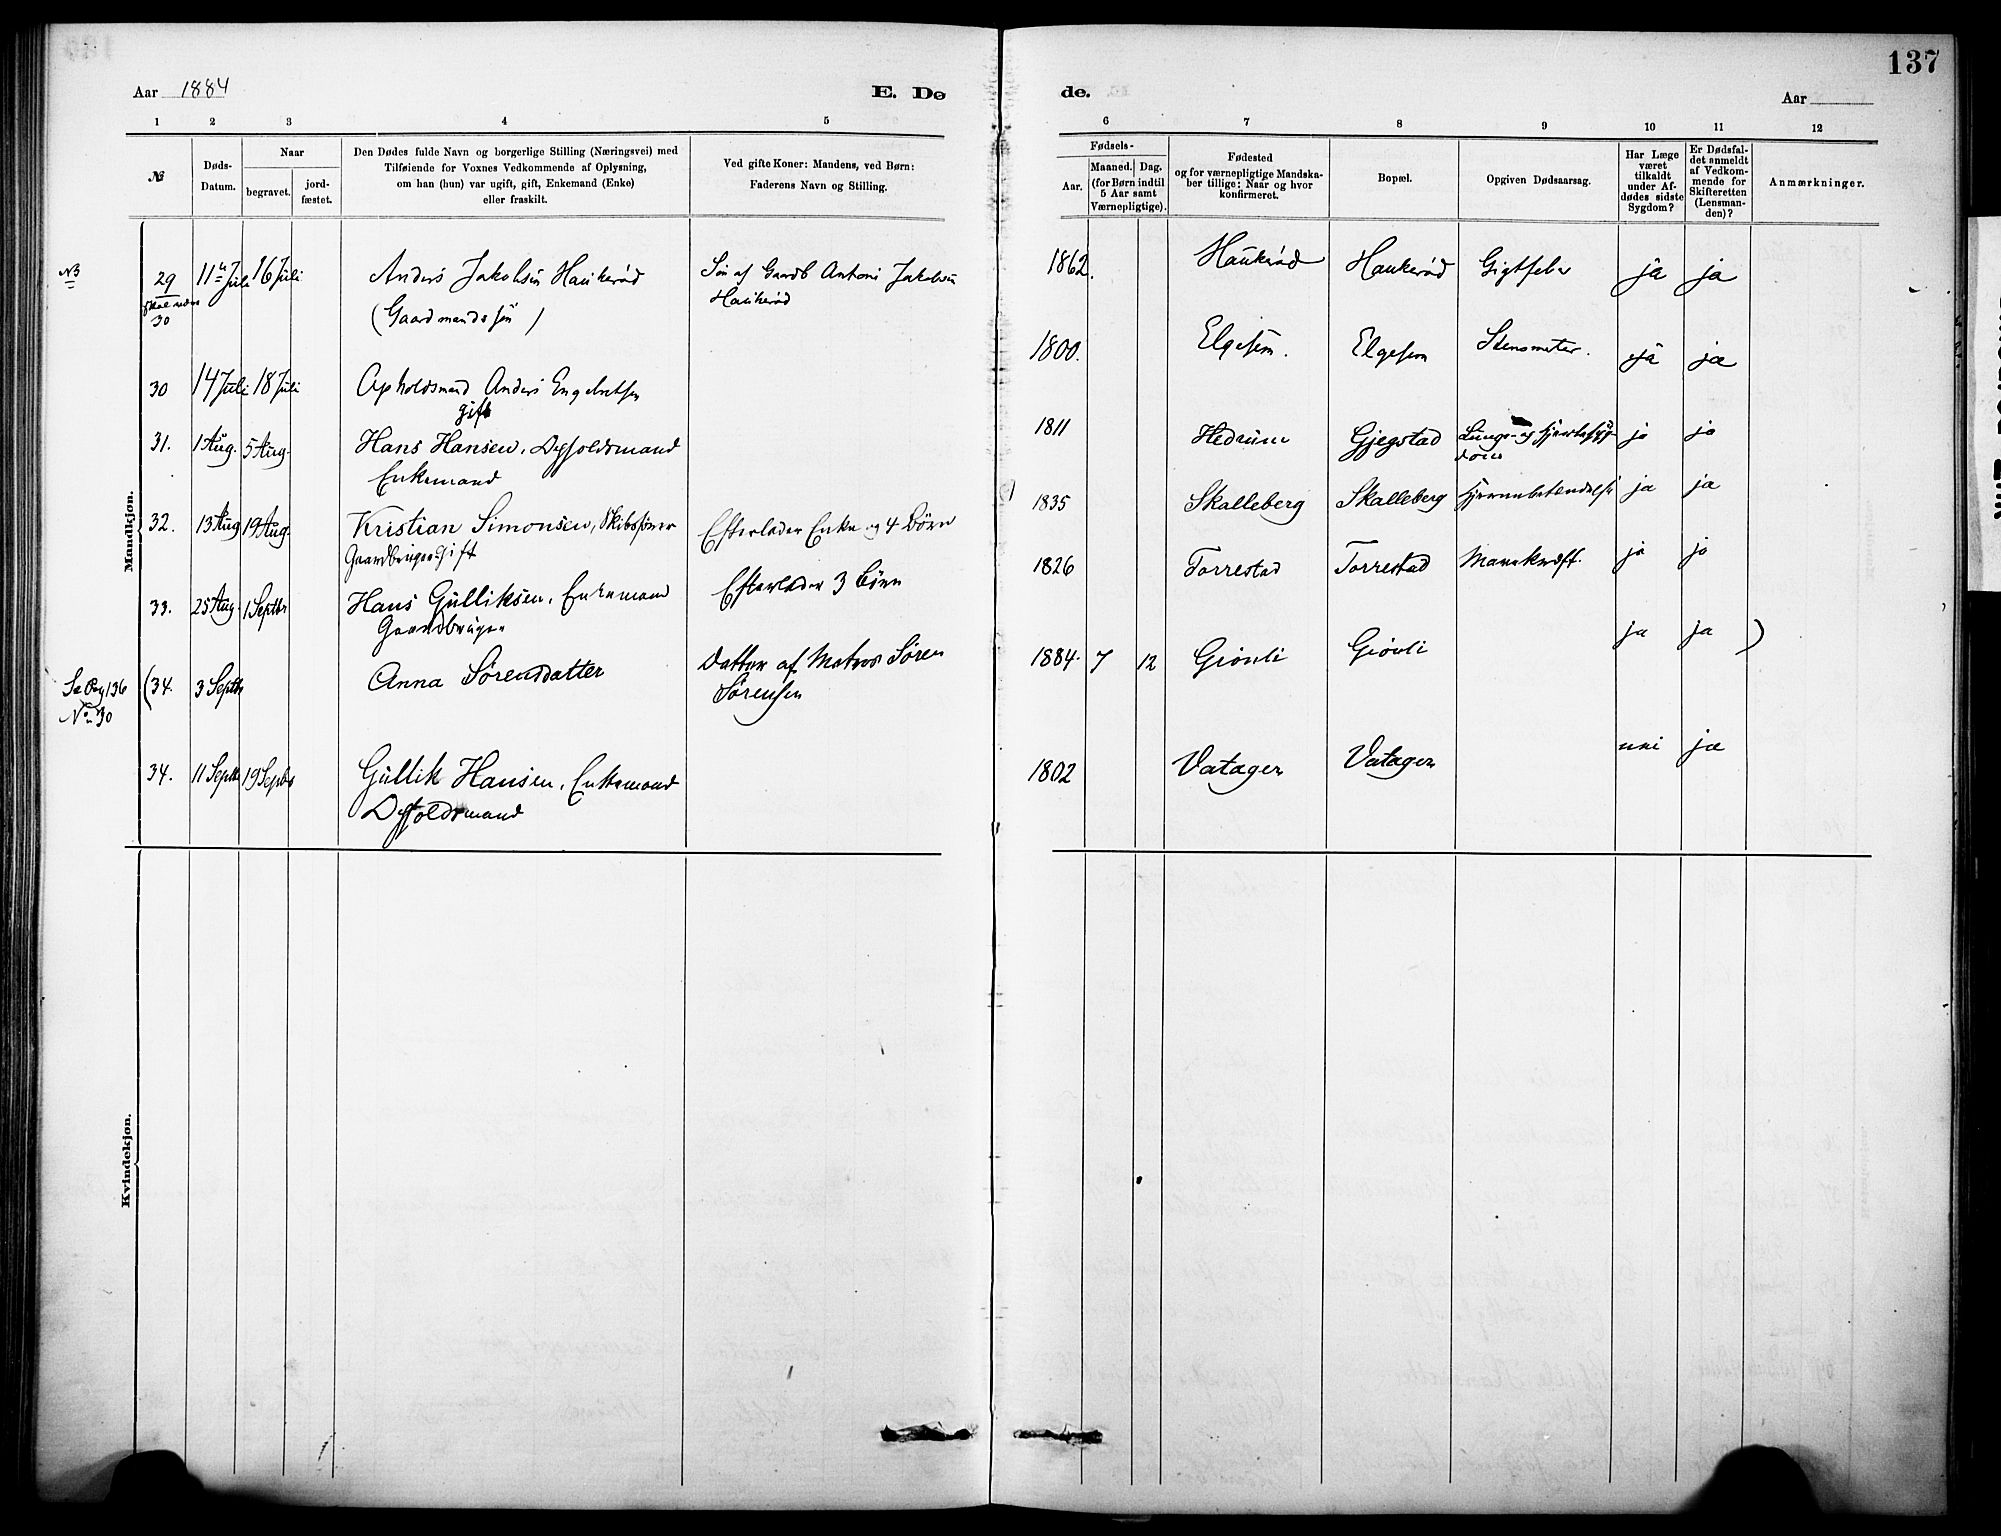 137
Aar 1884
E. Dø
de.
Aar
1 2 3 4 5 6 7 8 9 10 11 12
№
Døds-Datum.
Naar
begravet.
jord-fæstet.
Den Dødes fulde Navn og borgerlige Stilling (Næringsvei) med
Tilføiende for Voxnes Vedkommende af Oplysning,
om han (hun) var ugift, gift, Enkemand (Enke)
eller fraskilt.
Ved gifte Koner: Mandens, ved Børn:
Faderens Navn og Stilling.
Fødsels-
Aar.
Maaned. Dag.
(for Børn indtil
5 Aar samt
Værnepligtige).
Fødested
og for værnepligtige Mandska-
ber tillige: Naar og hvor
konfirmeret.
Bopæl.
Opgiven Dødsaarsag.
Har Læge
været
tilkaldt
under Af-
dødes sidste
Sygdom?
Er Dødsfal-
det anmeldt
af Vedkom-
mende for
Skifteretten
(Lensman-
den)?
Anmærkninger.
Mandkjøn.
NB 29 11te Juli 16 Juli Anders Jakobsen Haukerød Søn af Gaardb Antoni Jakobsen 1862. Haukerød Haukerød Gigtfeber ja ja
30 (Gaardmandssøn) Haukerød
30 14 Juli 18 Juli Opholdsmand Anders Engebretsen 1800. Elgesem. Elgesem Stensmeter. ja ja
gift
31. 1 Aug. 5 Aug. Hans Hansen, Opholdsmand 1811 Hedrum Gjegstad Lunge- og Hjertesyg- ja ja
Enkemand dom
32. 13 Aug 19 Aug. Kristian Simonsen, Skibsfører Efterlader Enke og 4 Børn 1835 Skalleberg Skalleberg Hjernebetændelse ja ja
Gaardbruger Gift
33. 25 Aug. 1 Septbr Hans Gulliksen, Enkemand Efterlader 3 Børn 1826 Torrestad Torrestad Mavekræft. ja ja
Gaardbruger
Se Pag 136 (34. 3 Septbr Anna Sørensdatter Datter af Matros Søren 1884. 7 12 Grønli Grønli ja ja )
No 30 Sørensen
34. 11 Septbr 19 Septbr Gullik Hansen, Enkemand 1802 Vatager Vatager nei ja
Opholdsmand
Kvindekjøn.